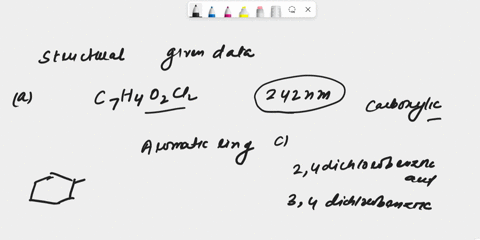 Structural given data
(a) C7H4O2Cl2 242nm
Carboxylic
Aromatic ring c)
2,4 dichlorobenzene
acid
3,4 dichlorobenzene